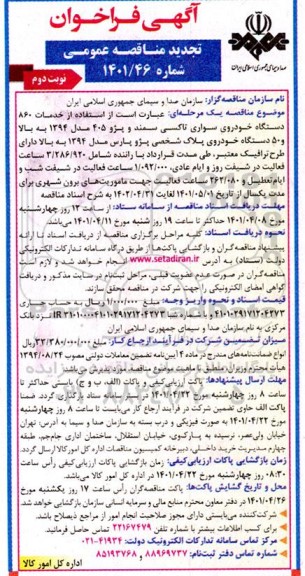 آگهی فراخوان
تجدید مناقصه عمومی
شماره ۱۴۰۱/۴۶
نوبت دوم
صدا و سیمای جمهوری اسلامی ایران
نام سازمان مناقصه‌گزار: سازمان صدا و سیمای جمهوری اسلامی ایران
موضوع مناقصه یک مرحله‌ای: عبارت است از استفاده از خدمات ۸۶۰
دستگاه خودروی سواری تاکسی سمند و پژو ۴۰۵ مدل ۱۳۹۴ به بالا
و ۵۰ دستگاه خودروی پلاک شخصی پژو پارس مدل ۱۳۹۴ به بالا دارای
طرح ترافیک معتبر، طی مدت قرارداد با راننده شامل ۳/۲۸۶/۹۲۰ ساعت
فعالیت در شیفت روز و ایام عادی، ۱/۰۹۲/۰۰۰ ساعت فعالیت در شیفت شب و
ایام تعطیل و ۲۶۲/۰۸۰ ساعت فعالیت جهت ماموریت‌های برون شهری برای
مدت یکسال از تاریخ ۱۴۰۱/۰۵/۰۱ لغایت ۱۴۰۲/۰۴/۳۱ به شرح اسناد مناقصه
مهلت دریافت اسناد مناقصه از سامانه ستاد: از ساعت ۱۳ روز چهارشنبه
مورخ ۱۴۰۱/۰۴/۰۸ حداکثر تا ساعت ۱۹ روز شنبه مورخ ۱۴۰۱/۰۴/۱۱ می‌باشد.
نحوه دریافت اسناد: کلیه مراحل برگزاری مناقصه از دریافت اسناد تا ارائه
پیشنهاد مناقصه‌گران و بازگشایی پاکت‌ها از طریق درگاه سامانه تدارکات الکترونیکی
دولت (ستاد) به آدرس www.setadiran.ir انجام خواهد شد و لازم است
مناقصه‌گران در صورت عدم عضویت قبلی، مراحل ثبت‌نام در سایت مذکور و دریافت
گواهی امضای الکترونیکی را جهت شرکت در مناقصه محقق سازند.
قیمت اسناد و نحوه واریز وجه: مبلغ ۱/۰۰۰/۰۰۰ ریال به حساب جاری
مرکزی به نام سازمان صدا و سیمای جمهوری اسلامی ایران
میزان تضمین شرکت در فرآیند ارجاع کار: مبلغ ۳۳/۳۸۰/۰۰۰/۰۰۰ ریال
انواع ضمانت‌نامه‌های مندرج در ماده ۴ آیین‌نامه تضمین معاملات دولتی مصوب ۱۳۹۴/۰۸/۲۴
مهلت ارسال پیشنهادها: پاکت ارزیابی کیفی و پاکات (الف، ب و ج) بایستی حداکثر تا
ساعت ۸ روز چهارشنبه مورخ ۱۴۰۱/۰۴/۲۲ در سامانه ستاد بارگذاری گردد. ضمنا
پاکت الف حاوی تضمین شرکت در فرآیند ارجاع کار می‌بایست تا ساعت ۸ روز چهارشنبه
مورخ ۱۴۰۱/۰۴/۲۲ به صورت فیزیکی و درب بسته به سازمان صدا و سیما به آدرس: تهران
خیابان ولی‌عصر، نرسیده به پارک‌وی، خیابان استقلال، ساختمان اداری جام‌جم، طبقه
چهارم مدیریت خرید داخلی، دبیرخانه کمیسیون مناقصات اداره کل امور کالا ارسال گردد.
زمان بازگشایی پاکات ارزیابی‌کیفی: زمان بازگشایی پاکات ارزیابی‌کیفی رأس ساعت
۰۸:۳۰ روز چهارشنبه مورخ ۱۴۰۱/۰۴/۲۲ در اداره کل امور کالا می‌باشد.
محل و تاریخ گشایش پاکت‌ها: پاکت مناقصه‌گران رأس ساعت ۱۷ روز یکشنبه مورخ
۱۴۰۱/۰۴/۲۶ در دفتر معاون محترم منابع مالی و سرمایه انسانی سازمان بازگشایی خواهد شد.
شرکت‌کننده می‌بایستی دارای مجوز صلاحیت انجام امور از مراجع ذیصلاح باشد.
برای کسب اطلاعات بیشتر با شماره تلفن ۲۲۱۶۷۴۷۹ تماس حاصل فرمائید.
مرکز تماس سامانه تدارکات الکترونیک دولت: ۴۱۹۳۴-۰۲۱
شماره تماس دفتر ثبت‌نام: ۸۸۹۶۹۷۳۷ و ۸۵۱۹۳۷۶۸
اداره کل امور کالا